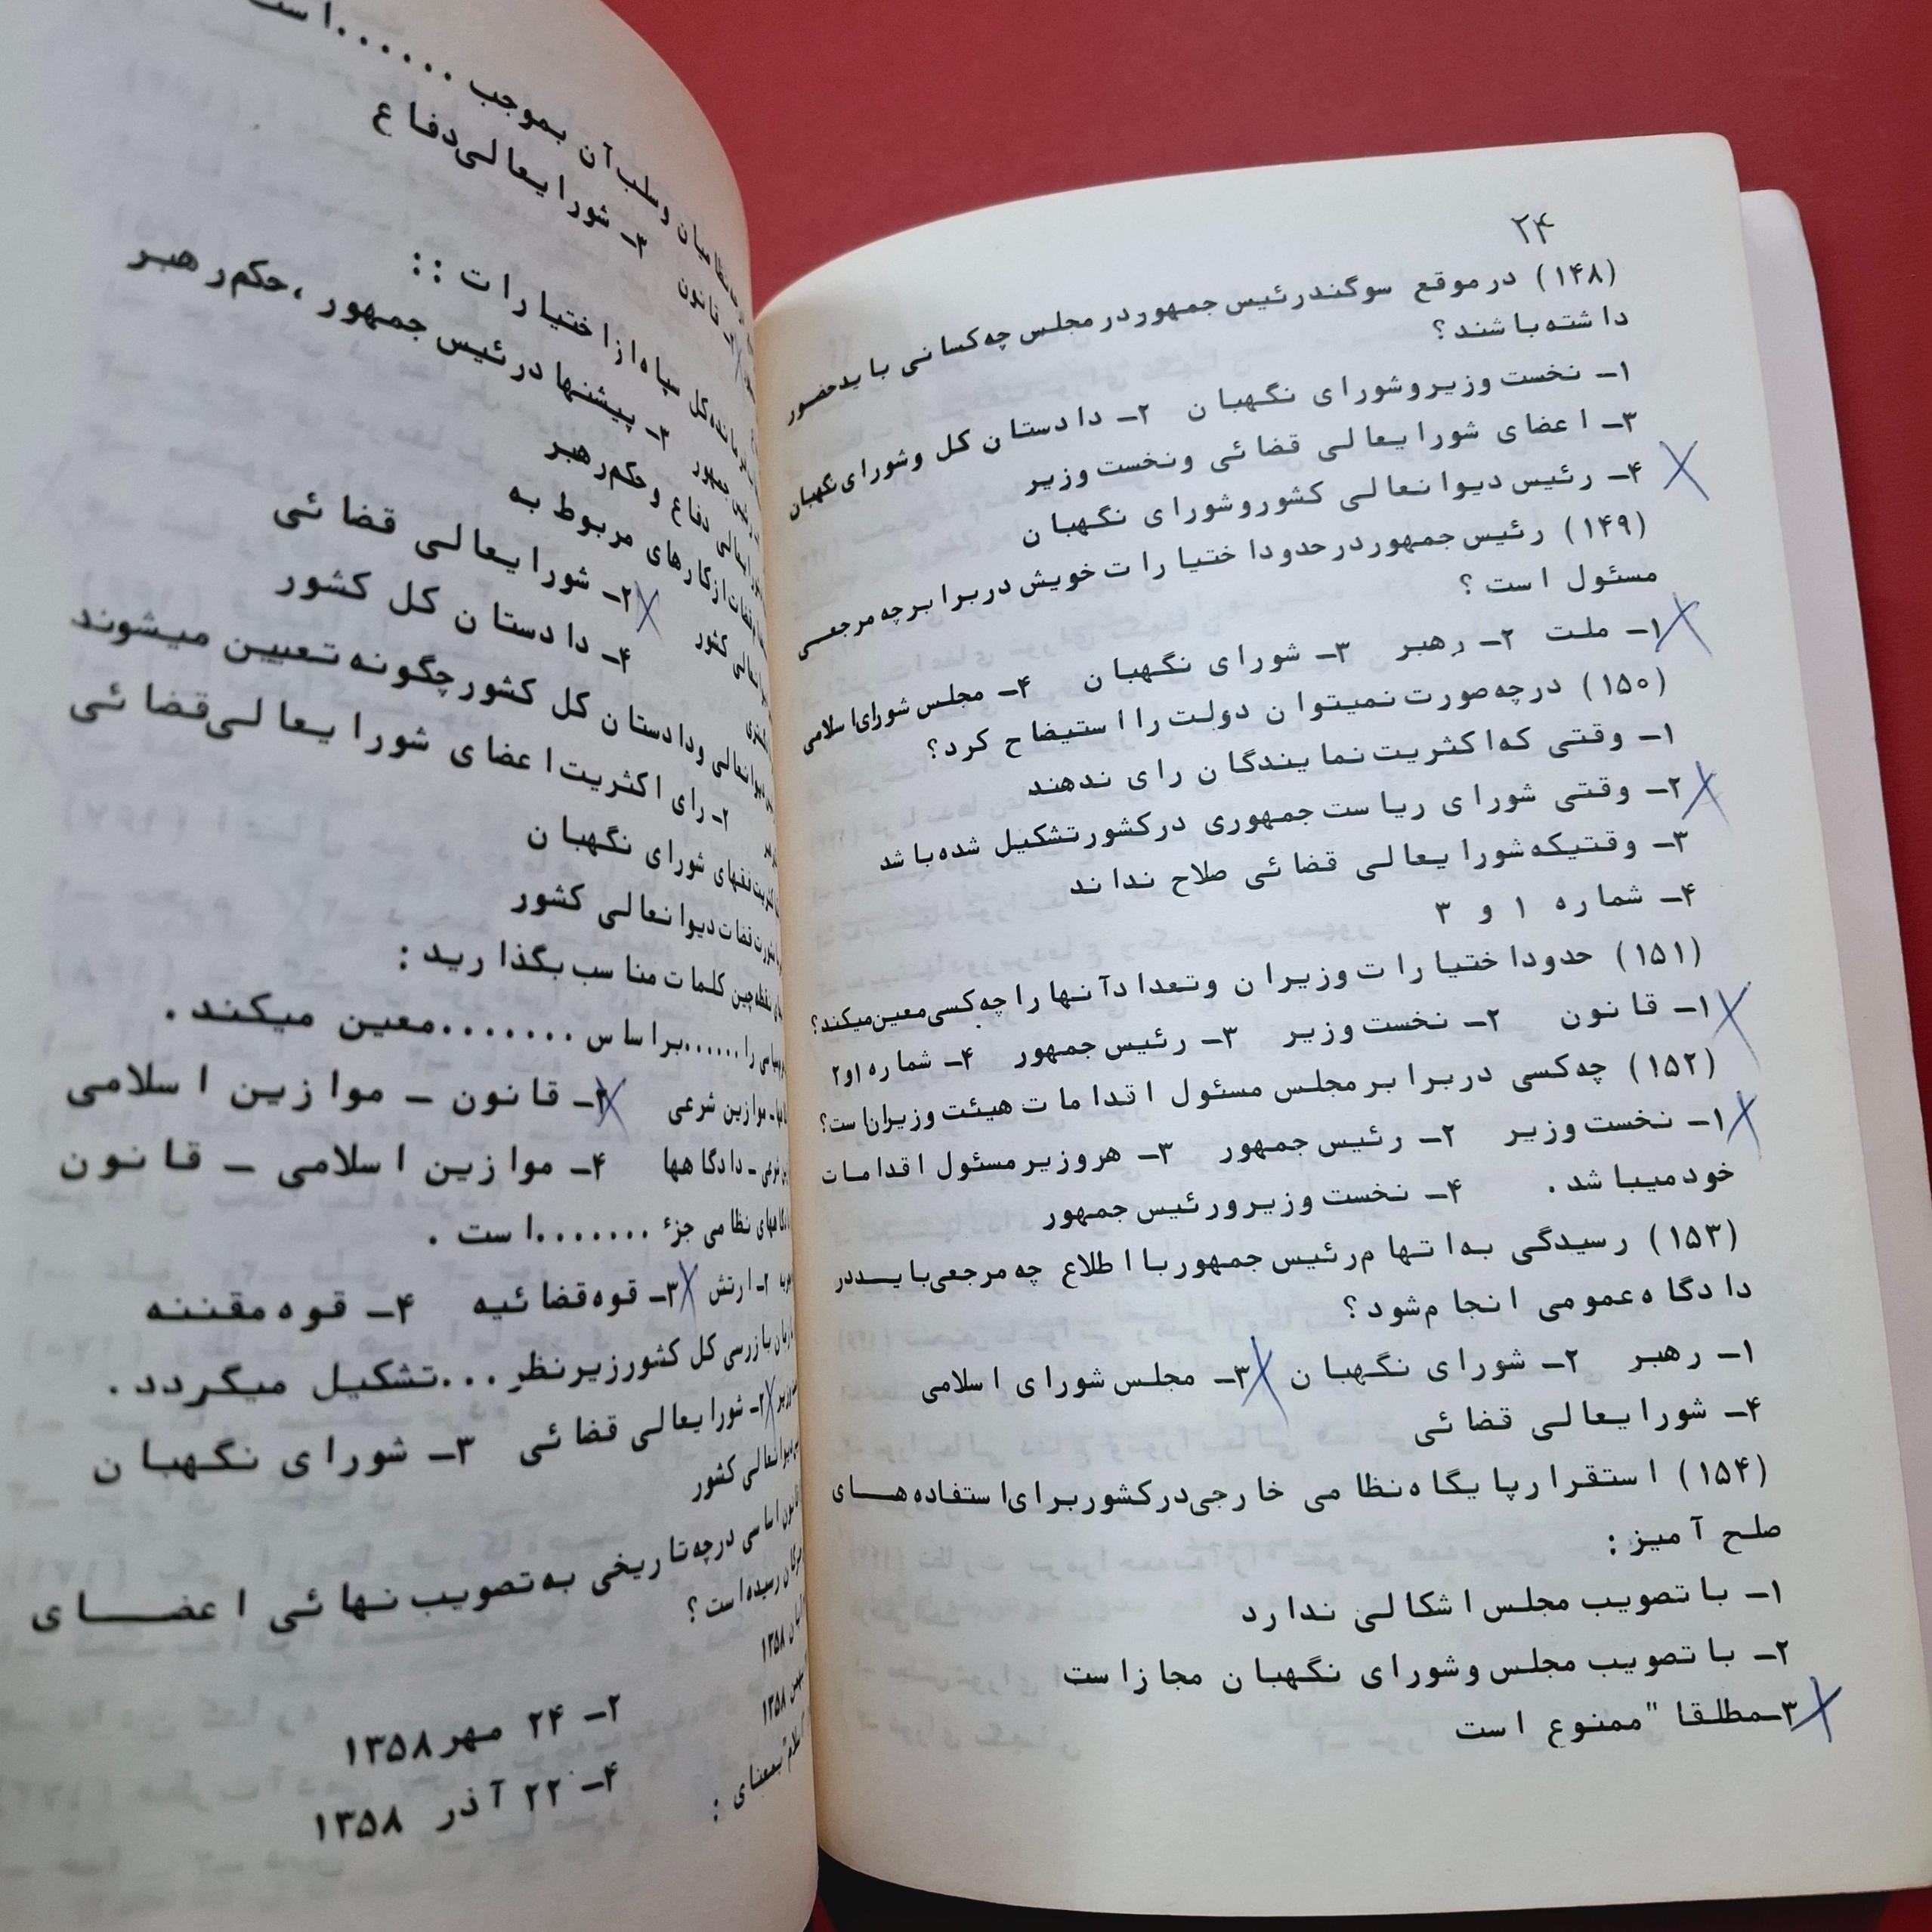 ۲۴
(۱۴۸) درموقع سوگندرئیس جمهوردر مجلس چه‌کسانی بایدحضور
داشته‌باشند؟
۱ـ نخست وزیروشورای نگهبان ۲ـ دادستان کل وشورای‌نگهبان
۳ـ اعضای شورایعالی قضائی ونخست وزیر
۴ـ رئیس دیوانعالی کشوروشورای نگهبان
(۱۴۹) رئیس جمهوردرحدوداختیارات خویش دربرابرچه مرجعی
مسئول است؟
۱ـ ملت ۲ـ رهبر ۳ـ شورای نگهبان ۴ـ مجلس شورای‌اسلامی
(۱۵۰) درچه‌صورت نمیتوان دولت را استیضاح کرد؟
۱ـ وقتی که‌اکثریت نمایندگان رای ندهند
۲ـ وقتی شورای ریاست جمهوری درکشورتشکیل شده‌باشد
۳ـ وقتیکه‌شورایعالی قضائی صلاح نداند
۴ـ شماره ۱ و ۳
(۱۵۱) حدوداختیارات وزیران وتعدادآنها را چه‌کسی‌معین‌میکند؟
۱ـ قانون ۲ـ نخست وزیر ۳ـ رئیس جمهور ۴ـ شماره ۱و۲
(۱۵۲) چه‌کسی دربرابرمجلس مسئول اقدامات هیئت وزیران‌است؟
۱ـ نخست وزیر ۲ـ رئیس جمهور ۳ـ هروزیرمسئول اقدامات
خودمیباشد. ۴ـ نخست وزیرورئیس جمهور
(۱۵۳) رسیدگی به‌اتهام‌رئیس جمهوربااطلاع چه مرجعی‌بایددر
دادگاه‌عمومی انجام‌شود؟
۱ـ رهبر ۲ـ شورای نگهبان ۳ـ مجلس شورای اسلامی
۴ـ شورایعالی قضائی
(۱۵۴) استقرارپایگاه‌نظامی خارجی‌درکشوربرای‌استفاده‌هـای
صلح آمیز:
۱ـ باتصویب مجلس اشکالی ندارد
۲ـ باتصویب مجلس وشورای نگهبان مجازاست
۳ـمطلقا "ممنوع است
وسلب‌آن بموجب ......است
۲ـ قانون ۳ـ شورایعالی‌دفاع
کل سپاه‌ازاختیارات ::
جمهور ۳ـ پیشنهادرئیس جمهور،حکم‌رهبر
دفاع وحکم‌رهبر
ازکارهای مربوط به
کشور ۲ـ شورایعالی قضائی
۴ـ دادستان کل کشور
دیوانعالی ودادستان کل کشورچگونه‌تعیین میشوند
۲ـ رای اکثریت‌اعضای شورایعالی‌قضائی
شورای نگهبان
قضات دیوانعالی کشور
نقطه‌چین کلمات مناسب‌بگذارید:
را......براساس .......معین میکند.
موازین شرعی ۲ـ قانون ـ موازین اسلامی
ـ دادگاهها ۴ـ موازین اسلامی ـ قانون
نظامی جزء .......است.
۲ـ ارتش ۳ـ قوه‌قضائیه ۴ـ قوه‌مقننه
بازرسی کل کشورزیرنظر...تشکیل میگردد.
۲ـ شورایعالی قضائی ۳ـ شورای نگهبان
دیوانعالی کشور
اساسی درچه‌تاریخی به‌تصویب‌نهائی اعضـای
رسیده‌است؟
۱۳۵۸ ۲ـ ۲۴ مهر۱۳۵۸
۱۳۵۸ ۴ـ ۲۲ آذر ۱۳۵۸
بمعنای: